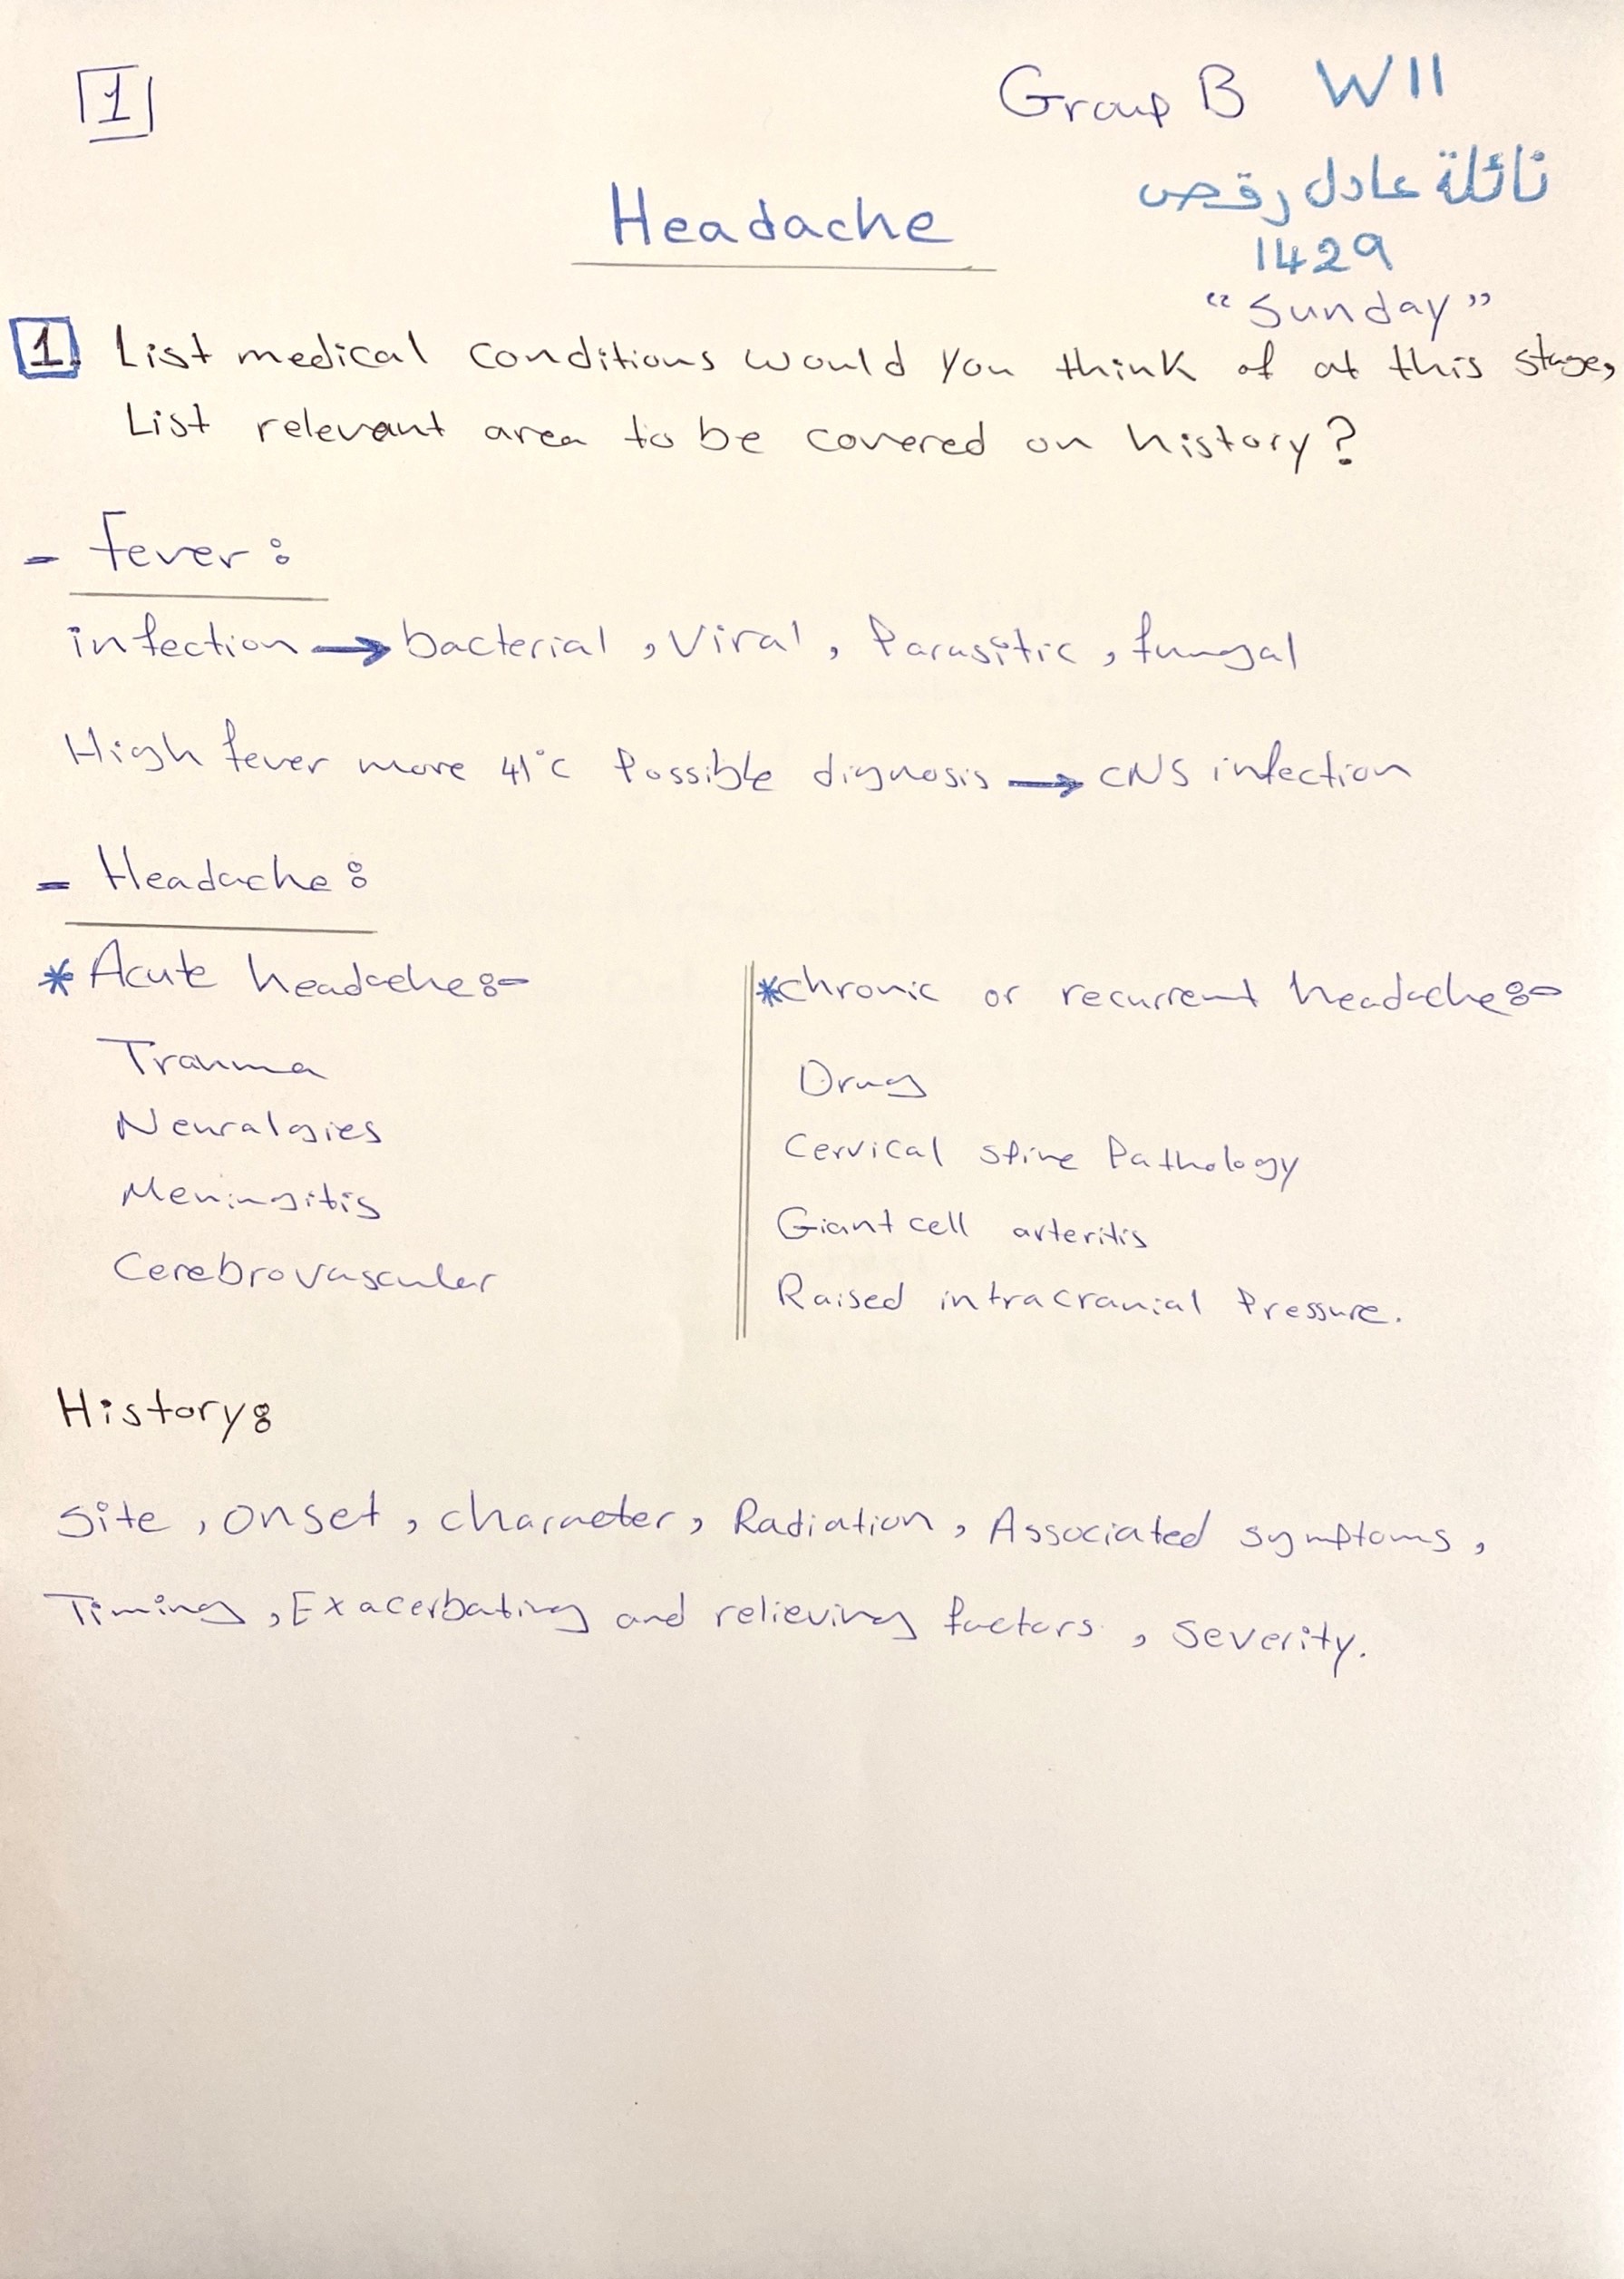 1
Group B W11
نائلة عادل رقص
1429
"Sunday"
Headache
1 List medical conditions would you think of at this stage,
List relevant area to be covered on history?
- Fever:
infection → bacterial, Viral, Parasitic, fungal
High fever more 41°C Possible dignosis → CNS infection
- Headache:
* Acute headache:-
Trauma
Neuralgies
Meningitis
Cerebrovascular
* chronic or recurrent headache:-
Drug
Cervical spine Pathology
Giant cell arteritis
Raised intracranial Pressure.
History:
Site, onset, character, Radiation, Associated symptoms,
Timing, Exacerbating and relieving factors, severity.